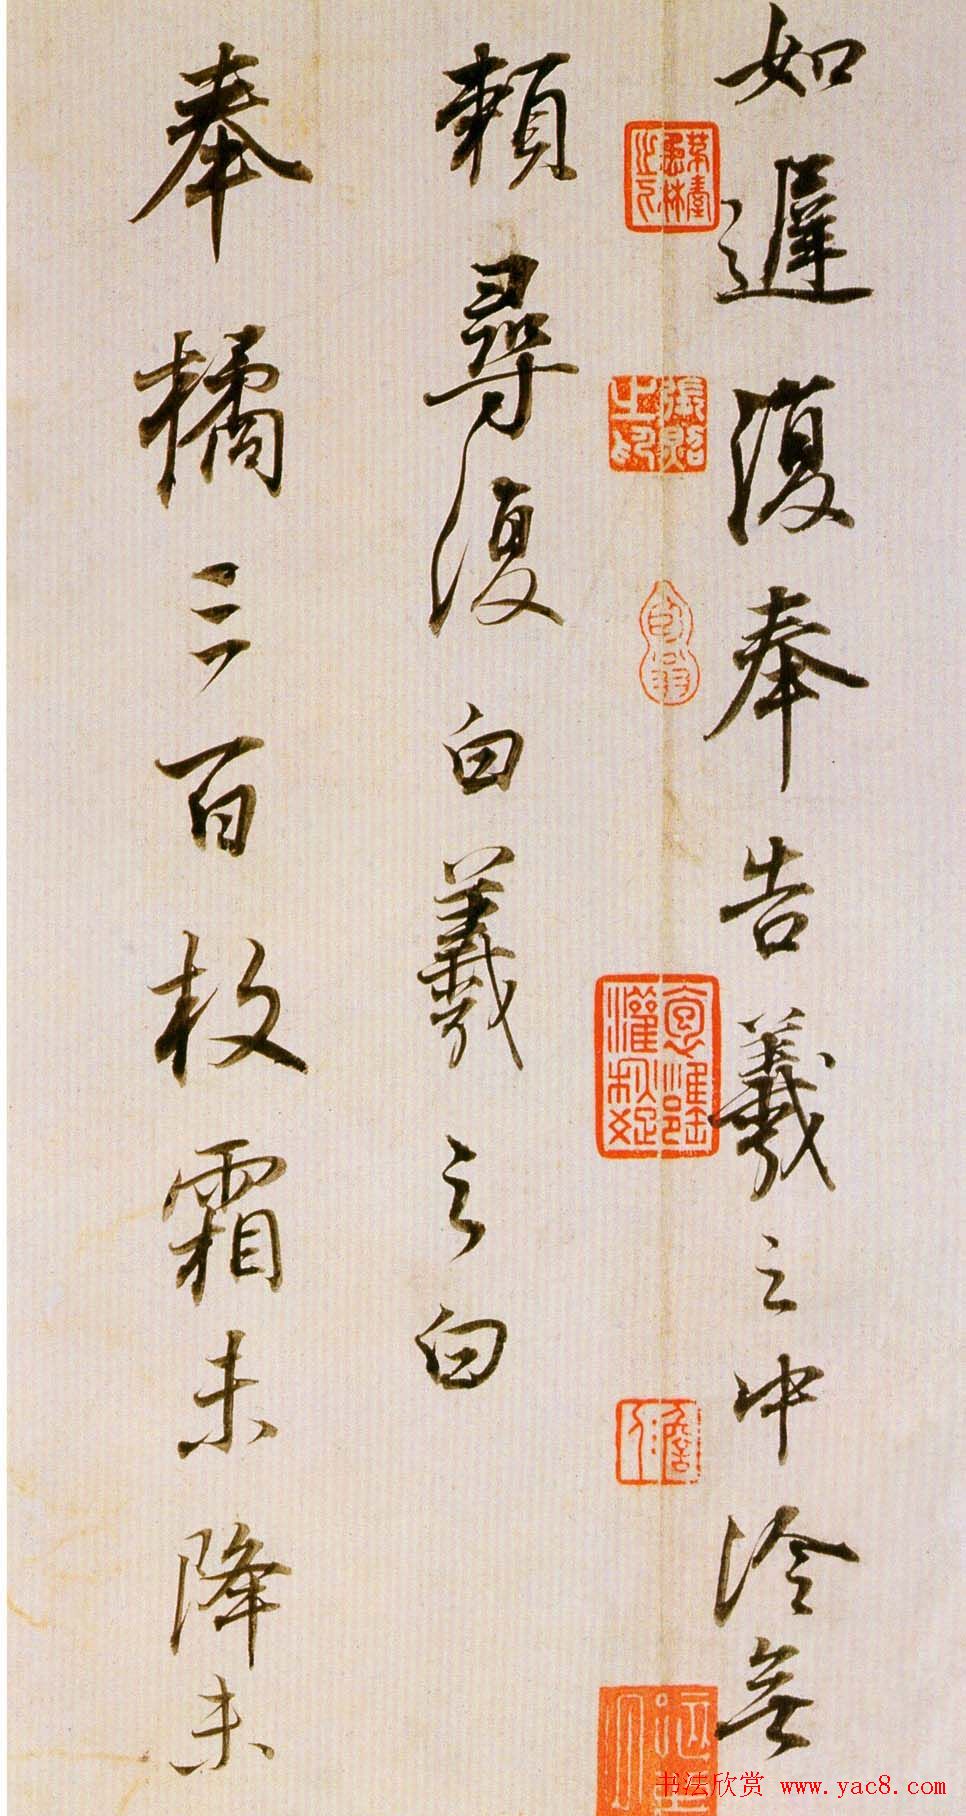 如遲復奉告羲之中冷無
賴尋復白羲之白
奉橘三百枚霜未降未
书法欣赏 www.yac8.com